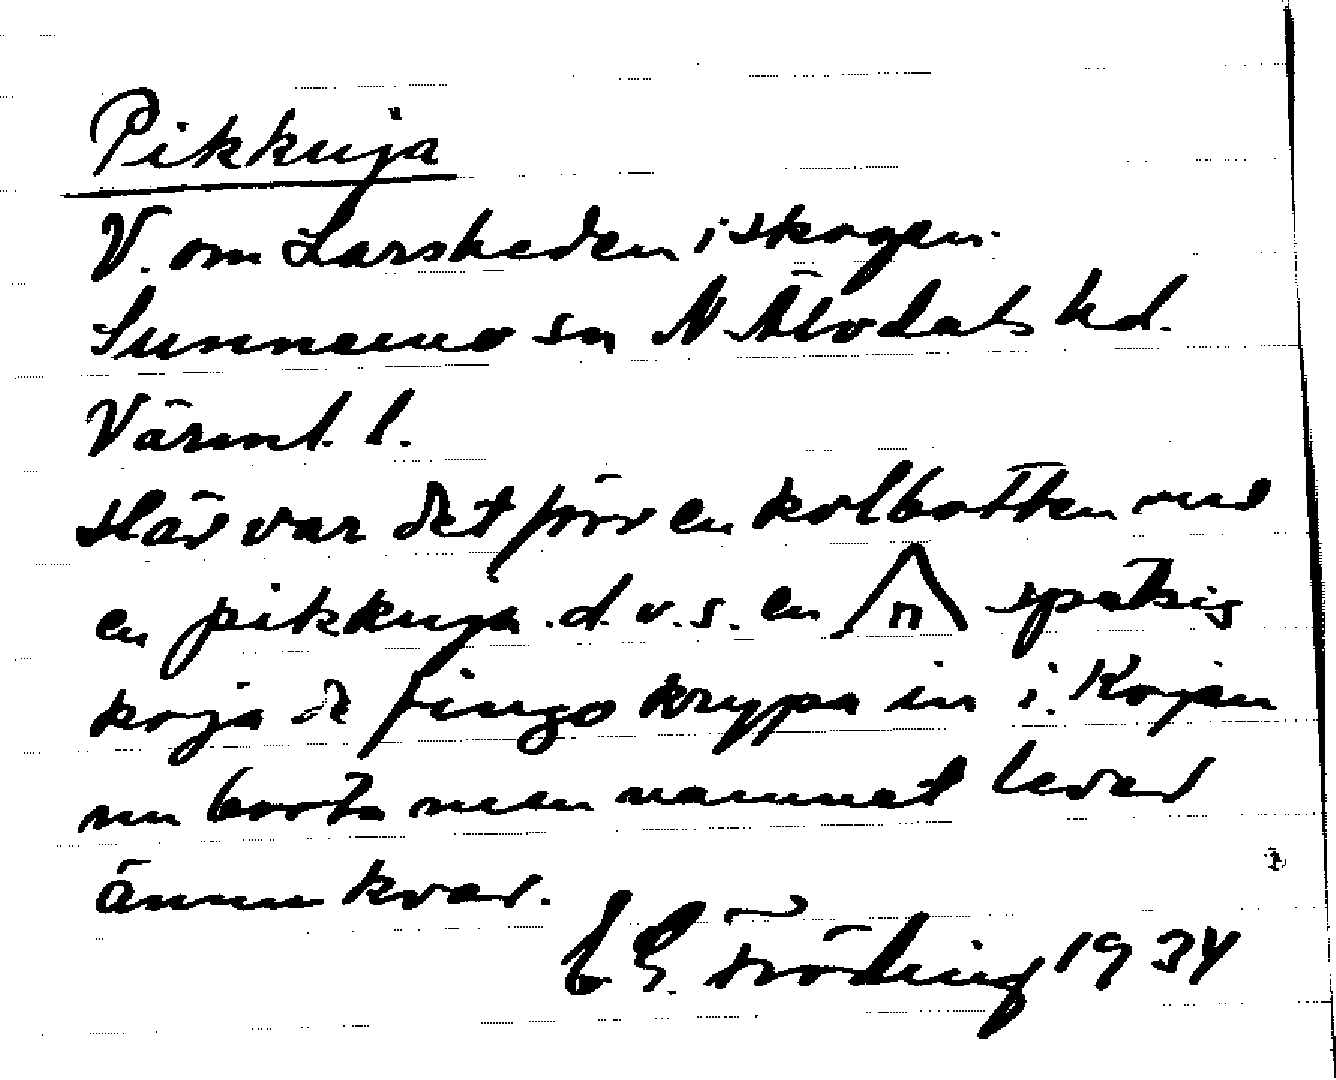 Pikkuja
V. om Larsheden i skogen.
Sunnemo sn N. Älvdals hd.
Värml. l.
Här var det förr en kolbotten med
en pikkuja d.v.s. en spetsig
koja de fingo krypa in i. Kojan
nu borta men namnet lever
ännu kvar.
E G. Fröding 1934